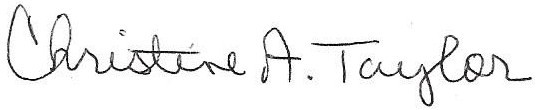 Christine A. Taylor